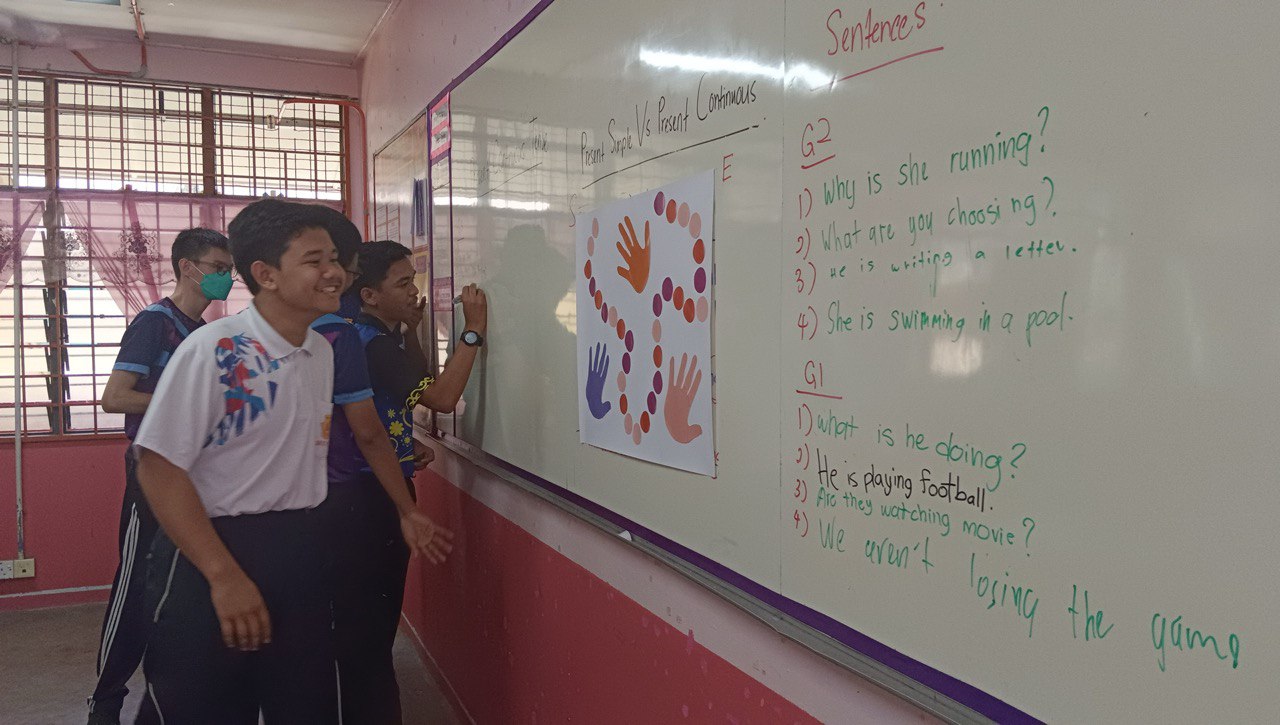 Present Simple Vs Present Continuous
E
S
Sentences.
G2
1) Why is she running?
2) What are you choosing?
3) He is writing a letter.
4) She is swimming in a pool.
G1
1) what is he doing?
2) He is playing football.
3) Are they watching movie?
4) We aren't losing the game